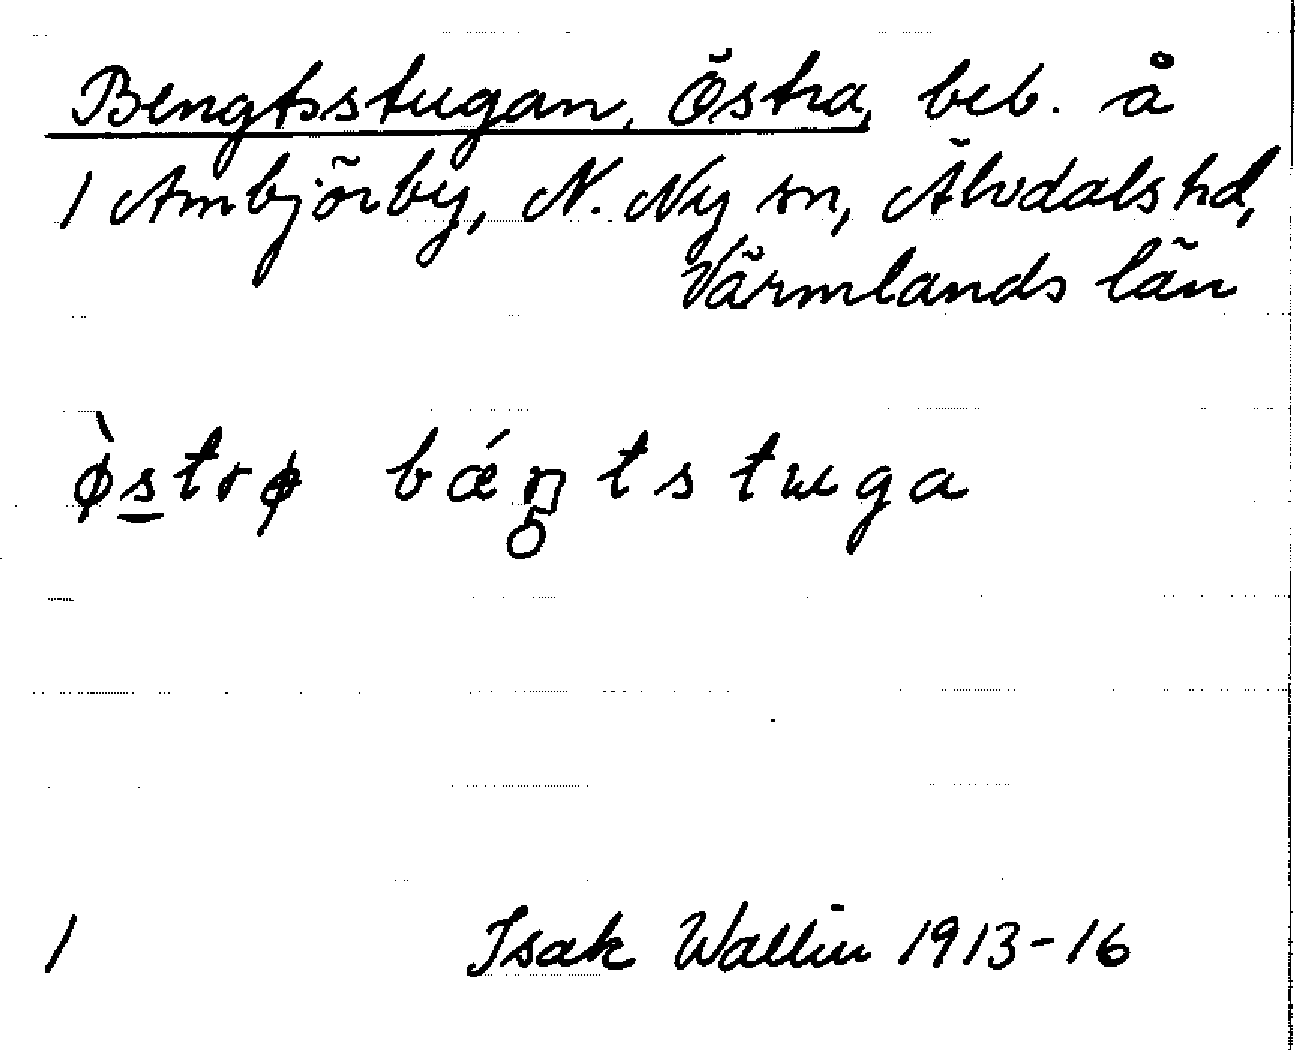 Bengtsstugan, Östra, beb. å
1 Ambjörby, N. Ny sn, Älvdals hd,
Värmlands län
ø̀s̲trø bǽŋ̥tstɯga
1 Isak Wallin 1913-16